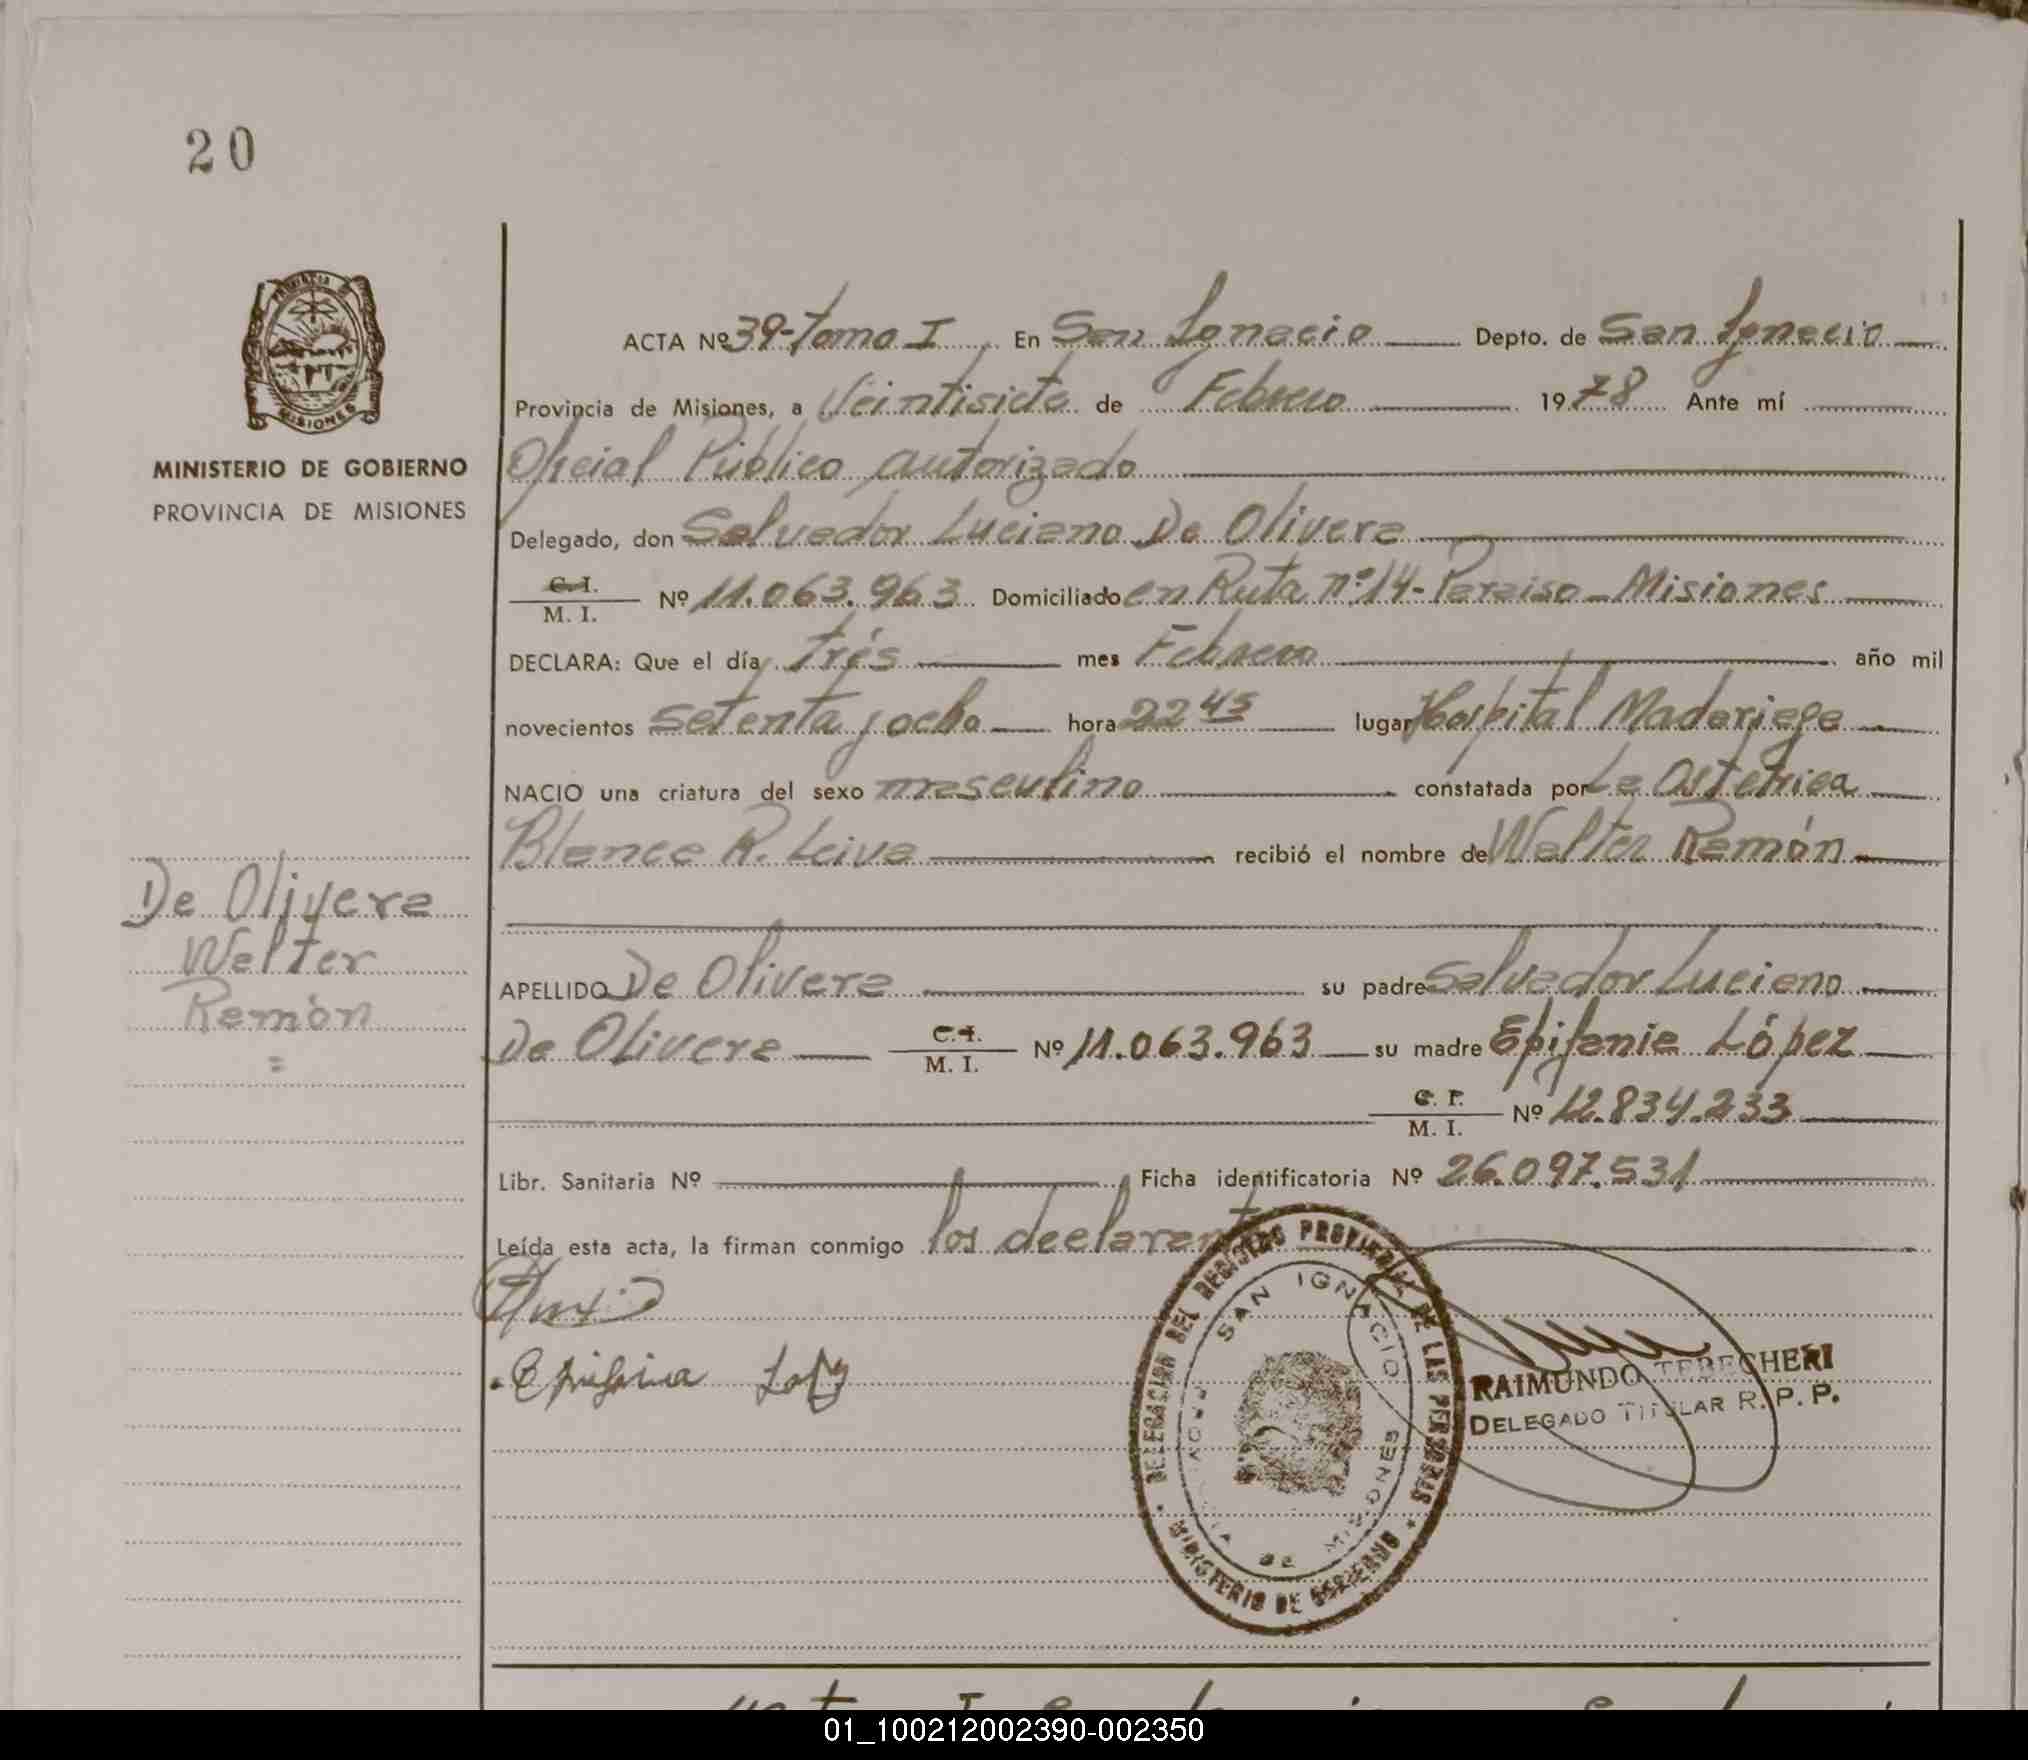 20
MISIONES
MINISTERIO DE GOBIERNO
PROVINCIA DE MISIONES
ACTA Nº 39-tomo I En San Ignacio Depto. de San Ignacio
Provincia de Misiones, a Veintisiete de Febrero 1978 Ante mí
Oficial Público autorizado
Delegado, don Salvador Luciano De Olivera
C. I.
M. I. Nº 11.063.963 Domiciliado en Ruta nº 14- Paraiso - Misiones
DECLARA: Que el día tres mes Febrero año mil
novecientos setenta y ocho hora 22 45 lugar Hospital Madariaga
NACIO una criatura del sexo masculino constatada por La Ostetrica
Blanca R. Leiva recibió el nombre de Walter Ramón
De Olivera
Walter
Ramón
=
APELLIDO De Olivera su padre Salvador Luciano
De Olivera C. I.
M. I. Nº 11.063.963 su madre Epifania López
C. I.
M. I. Nº 12.834.233
Libr. Sanitaria Nº Ficha identificatoria Nº 26.097.531
Leída esta acta, la firman conmigo los declarant
DELEGACION DEL REGISTRO PROVINCIAL DE LAS PERSONAS
SAN IGNACIO
DE MISIONES
MINISTERIO DE GOBIERNO
RAIMUNDO TEBECHERI
DELEGADO TITULAR R. P. P.
01_100212002390-002350